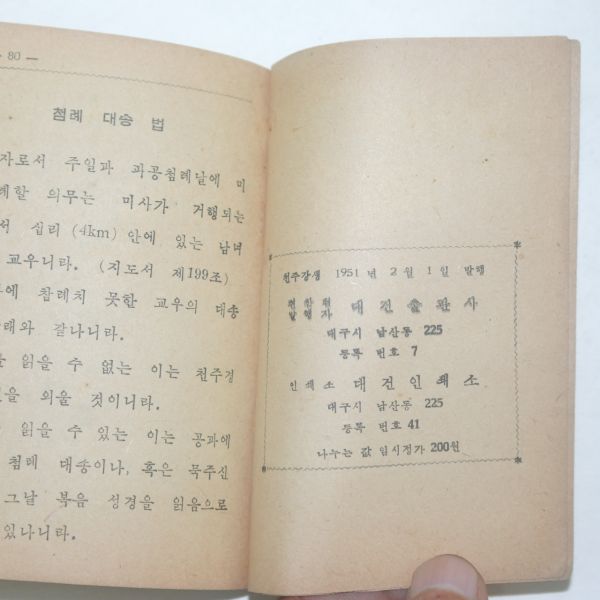 80 —
첨례 대송 법
자로서 주일과 파공첨례날에 미
례할 의무는 미사가 거행되는
서 십리 (4km) 안에 있는 남녀
교우니라. (지도서 제199조)
에 참례치 못한 교우의 대송
래와 같나니라.
읽을 수 없는 이는 천주경
을 외울 것이니라.
읽을 수 있는 이는 공과에
첨례 대송이나, 혹은 묵주신
그날 복음 성경을 읽음으로
있나니라.
천주강생 1951 년 2 월 1 일 발행
발행자 대건출판사
대구시 남산동 225
등록 번호 7
인쇄소 대건인쇄소
대구시 남산동 225
등록 번호 41
나누는 값 임시정가 200원